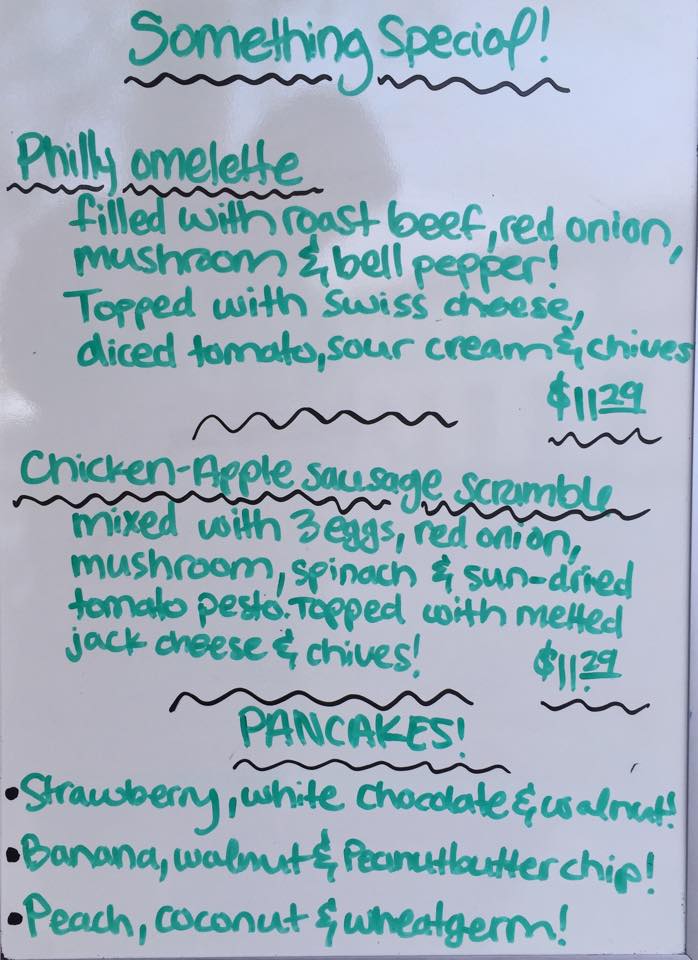 Something Special!
Philly omelette
filled with roast beef, red onion,
mushroom & bell pepper!
Topped with Swiss cheese,
diced tomato, sour cream & chives
$11.29
Chicken-Apple sausage scramble
mixed with 3 eggs, red onion,
mushroom, spinach & sun-dried
tomato pesto. Topped with melted
jack cheese & chives!
$11.29
PANCAKES!
• Strawberry, white chocolate & walnut!
• Banana, walnut & Peanutbutter chip!
• Peach, coconut & wheatgerm!